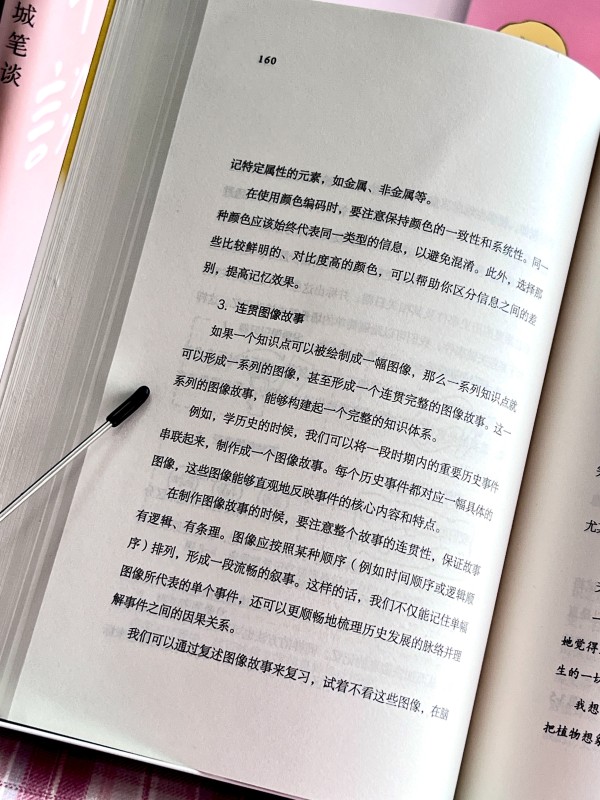 城笔谈
160
记特定属性的元素，如金属、非金属等。
在使用颜色编码时，要注意保持颜色的一致性和系统性。同一
种颜色应该始终代表同一类型的信息，以避免混淆。此外，选择那
些比较鲜明的、对比度高的颜色，可以帮助你区分信息之间的差
别，提高记忆效果。
3. 连贯图像故事
如果一个知识点可以被绘制成一幅图像，那么一系列知识点就
可以形成一系列的图像，甚至形成一个连贯完整的图像故事。这一
系列的图像故事，能够构建起一个完整的知识体系。
例如，学历史的时候，我们可以将一段时期内的重要历史事件
串联起来，制作成一个图像故事。每个历史事件都对应一幅具体的
图像，这些图像能够直观地反映事件的核心内容和特点。
在制作图像故事的时候，要注意整个故事的连贯性，保证故事
有逻辑、有条理。图像应按照某种顺序（例如时间顺序或逻辑顺
序）排列，形成一段流畅的叙事。这样的话，我们不仅能记住单幅
图像所代表的单个事件，还可以更顺畅地梳理历史发展的脉络并理
解事件之间的因果关系。
我们可以通过复述图像故事来复习，试着不看这些图像，在脑
尤
她觉得
生的一切
我想
把植物想象